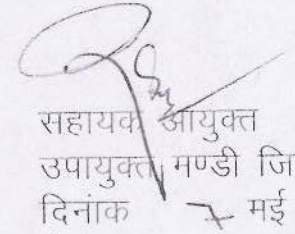 सहायक आयुक्त
उपायुक्त मण्डी जि
दिनांक 7 मई